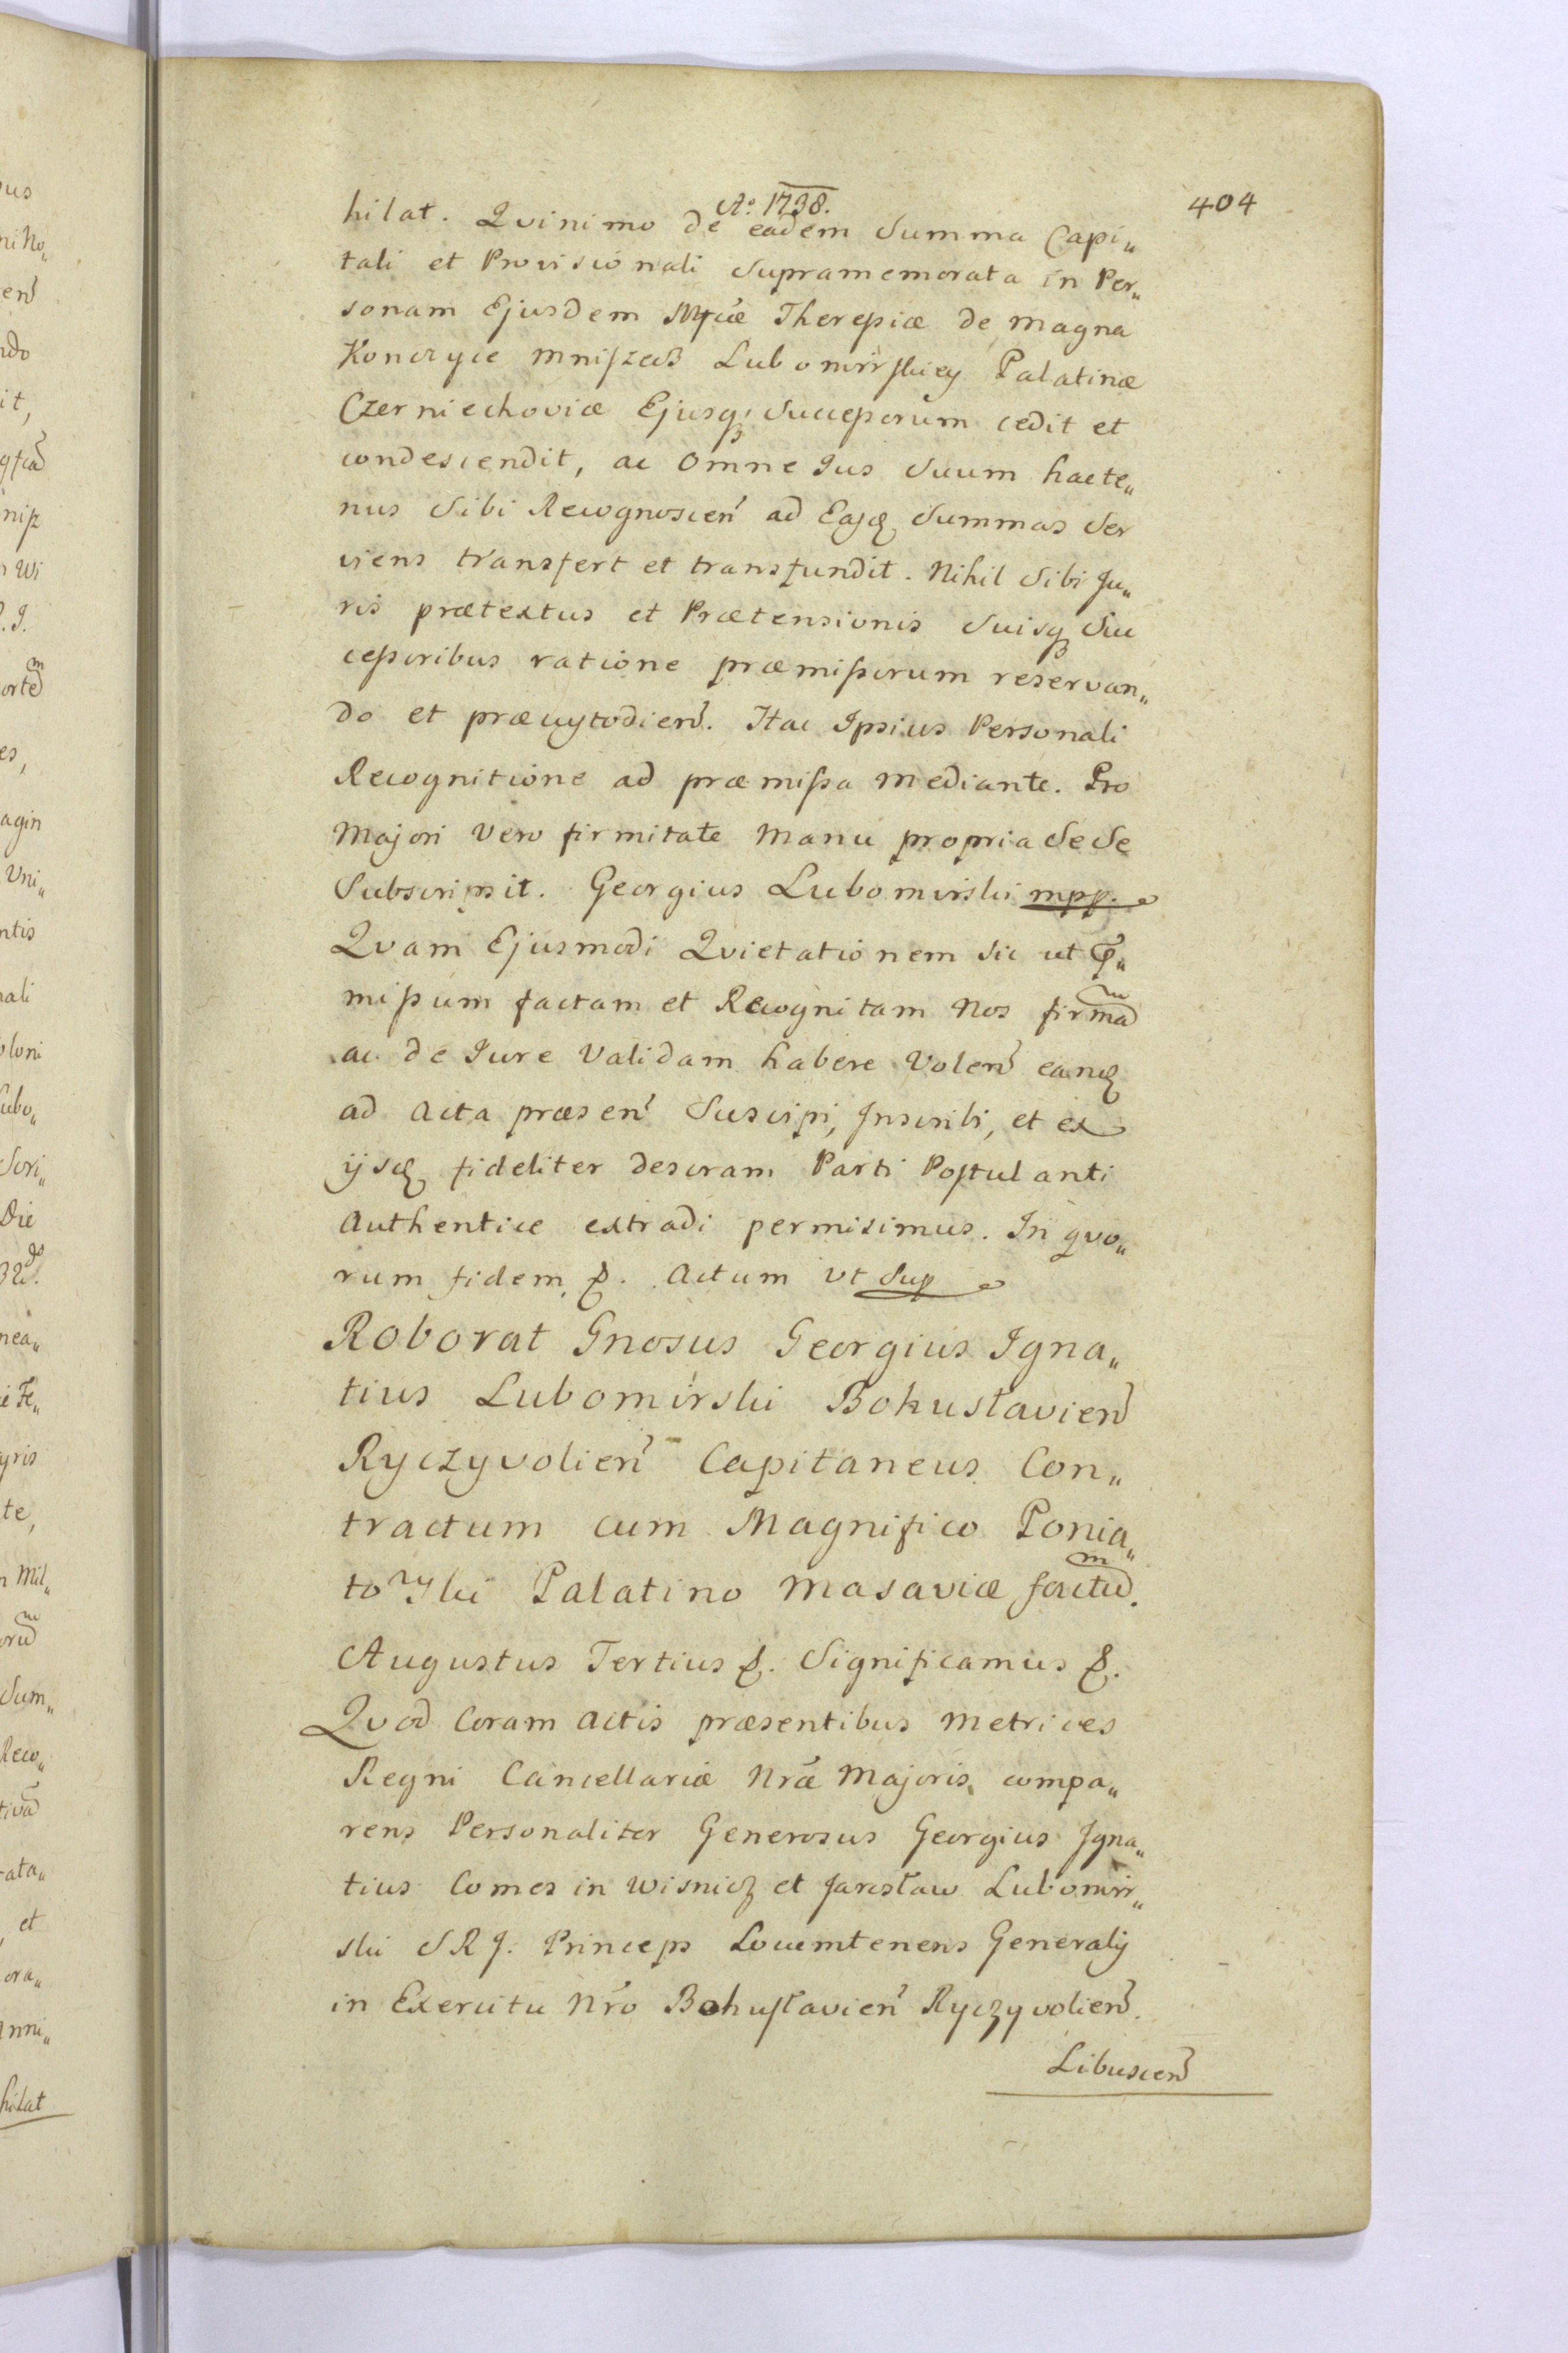 Aº 1738.
404
hilat. Qvinimo de eadem Summa Capi„
tali et Provisionali Supramemorata in Per„
sonam Ejusdem Mfcæ Theressiæ de magna
Konczyce Mniszech Lubomirskiey Palatinæ
Czerniechoviæ Ejusq; Successorum cedit et
condescendit, ac Omne Jus Suum hacte„
nus Sibi Recognoscen ad Easq Summas Ser
viens transfert et transfundit. Nihil Sibi Ju„
ris prætextus et Prætensionis Suisq Suc
cessoribus ratione præmissorum reservan„
do et præcustodien. Hac Ipsius Personali
Recognitione ad præmissa mediante. Pro
Majori Vero firmitate Manu propria Se Se
Subscripsit. Georgius Lubomirski mpp.
Qvam Ejusmodi Qvietationem Sic ut P„
missum factam et Recognitam Nos firmam
ac de Jure Validam habere Volen eamq
ad Acta præsen Suscipi, Inscribi, et ex
ijsq fideliter descram Parti Postulanti
Authentice extradi permisimus. In qvo„
rum fidem &. Actum Vt Sup
Roborat Gnosus Georgius Igna„
tius Lubomirski Bohuslavien
Ryczyvolien Capitaneus Con„
tractum cum Magnifico Ponia„
towski Palatino Masaviæ factum.
Augustus Tertius &. Significamus &.
Qvod Coram Actis præsentibus Metrices
Regni Cancellariæ Nræ Majoris compa„
rens Personaliter Generosus Georgius Igna„
tius Comes in Wisnicz et Jarosław Lubomir„
ski S R J. Princeps Locumtenens Generalis
in Exercitu Nro Bohuslavien Ryczyvolien.
Libuscen